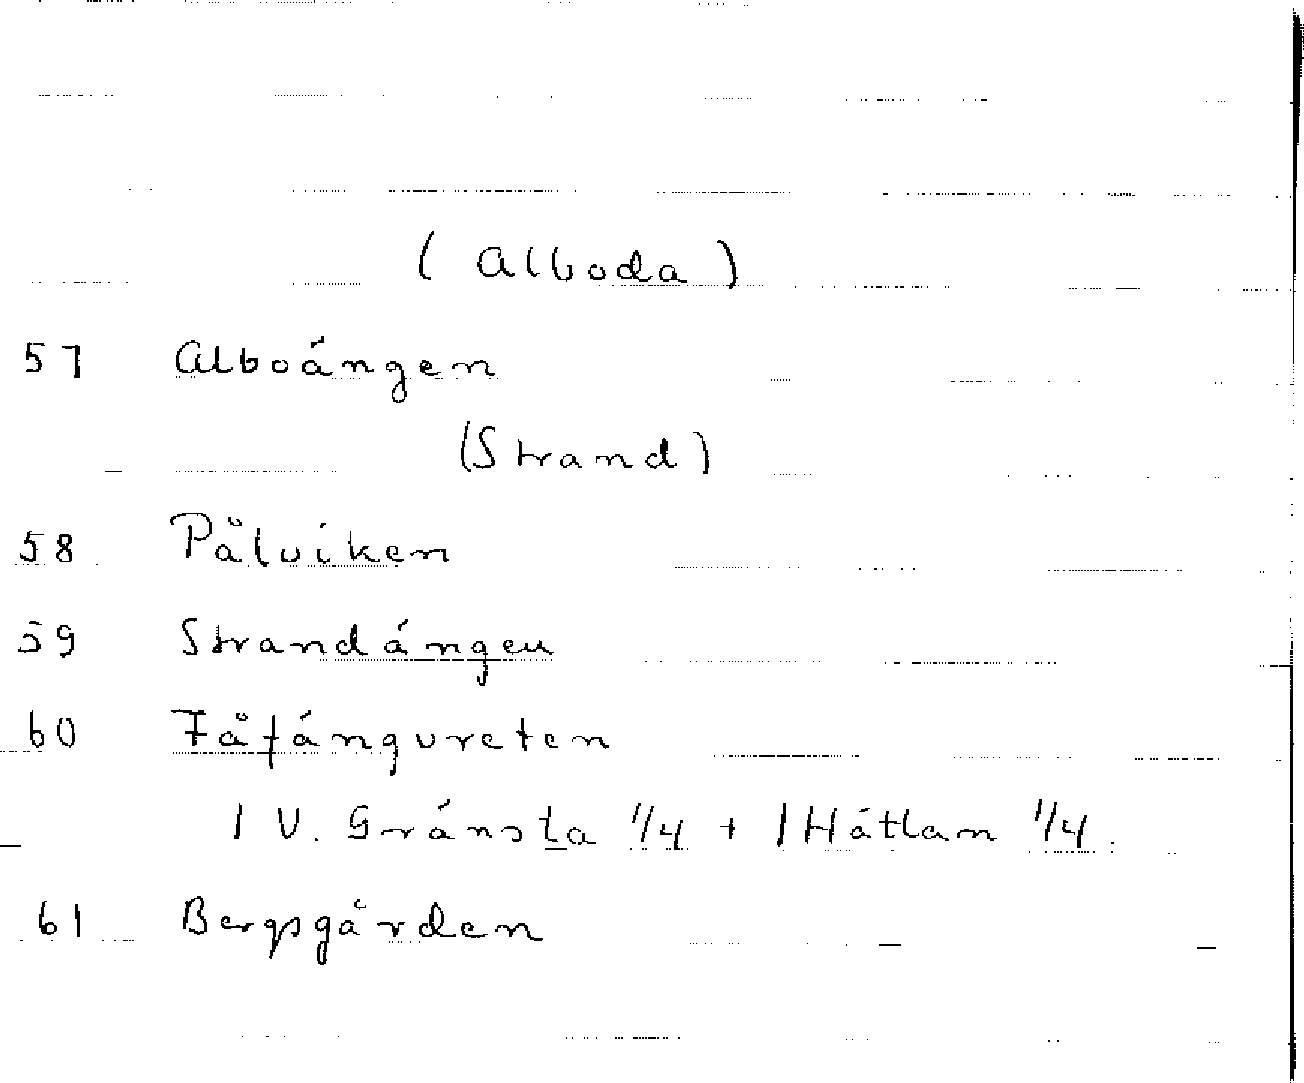 (Alboda)
57 Alboängen
(Strand)
58 Pålviken
59 Strandängen
60 Fåfängvreten
1 V. Gränsta 1/4 + 1 Hätlam 1/4.
61 Bergsgården